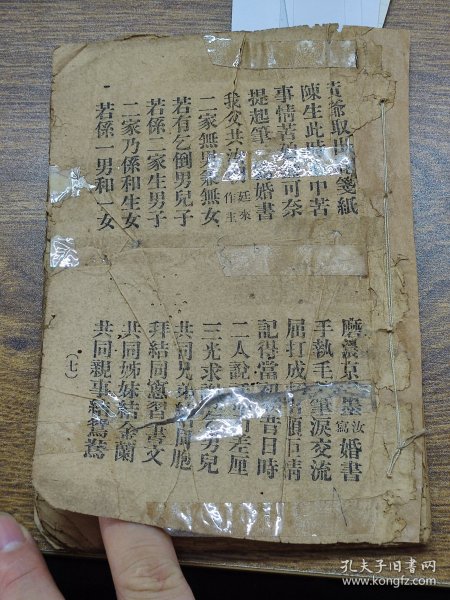 黃爺取出 箋紙
磨濃京 墨汝寫婚書
陳生此時 中苦
手執毛 筆淚交流
事情苦 可奈
屈打成 招 頭巨情
提起筆 寫婚書
記得當初 昔日時
我父共汝 廷來作主
二人說 差厘
二家無男兼無女
三光求 男兒
若有乞倒男兒子
共同兄弟結同胞
若係二家生男子
拜結同窻習書文
二家乃係和生女
共同姊妹結金蘭
若係一男和一女
共同親事結鴛鴦
(七)
孔夫子旧书网
www.kongfz.com